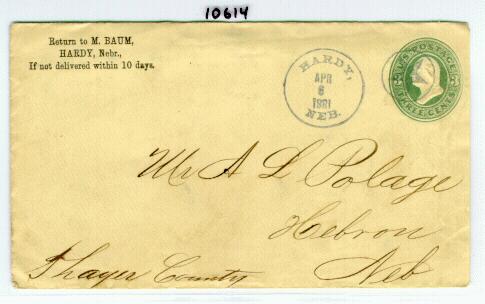 10614
Return to M. BAUM,
HARDY, Nebr.,
If not delivered within 10 days.
HARDY,
APR
6
1881
NEB.
U.S. POSTAGE
THREE CENTS
Mr A L Polage
Hebron
Thayer County Neb